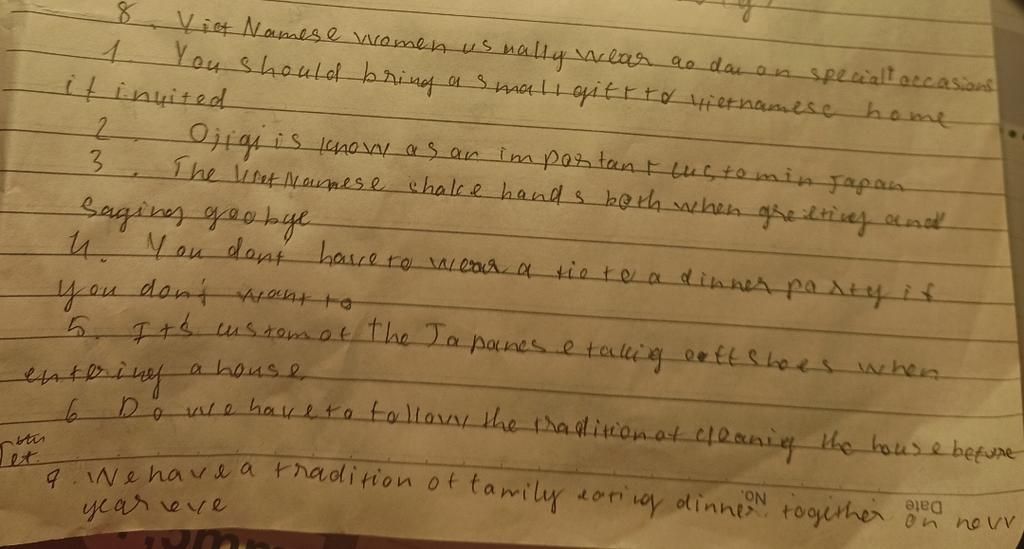 8. Viet Namese women usually wear ao dai on special occasions
1. You should bring a small gift to Vietnamese home
if invited
2. Ojigi is know as an important custom in Japan
3. The Viet Namese shake hands both when greeting and
saging goobye
4. You don't have to wear a tie to a dinner party if
you don't want to
5. It's custom of the Japanese taking off shoes when
entering a house
6 Do we have to follow the tradition of cleaning the house before
Tet
9. We have a tradition of family eating dinner together on new
year eve
No.
Date